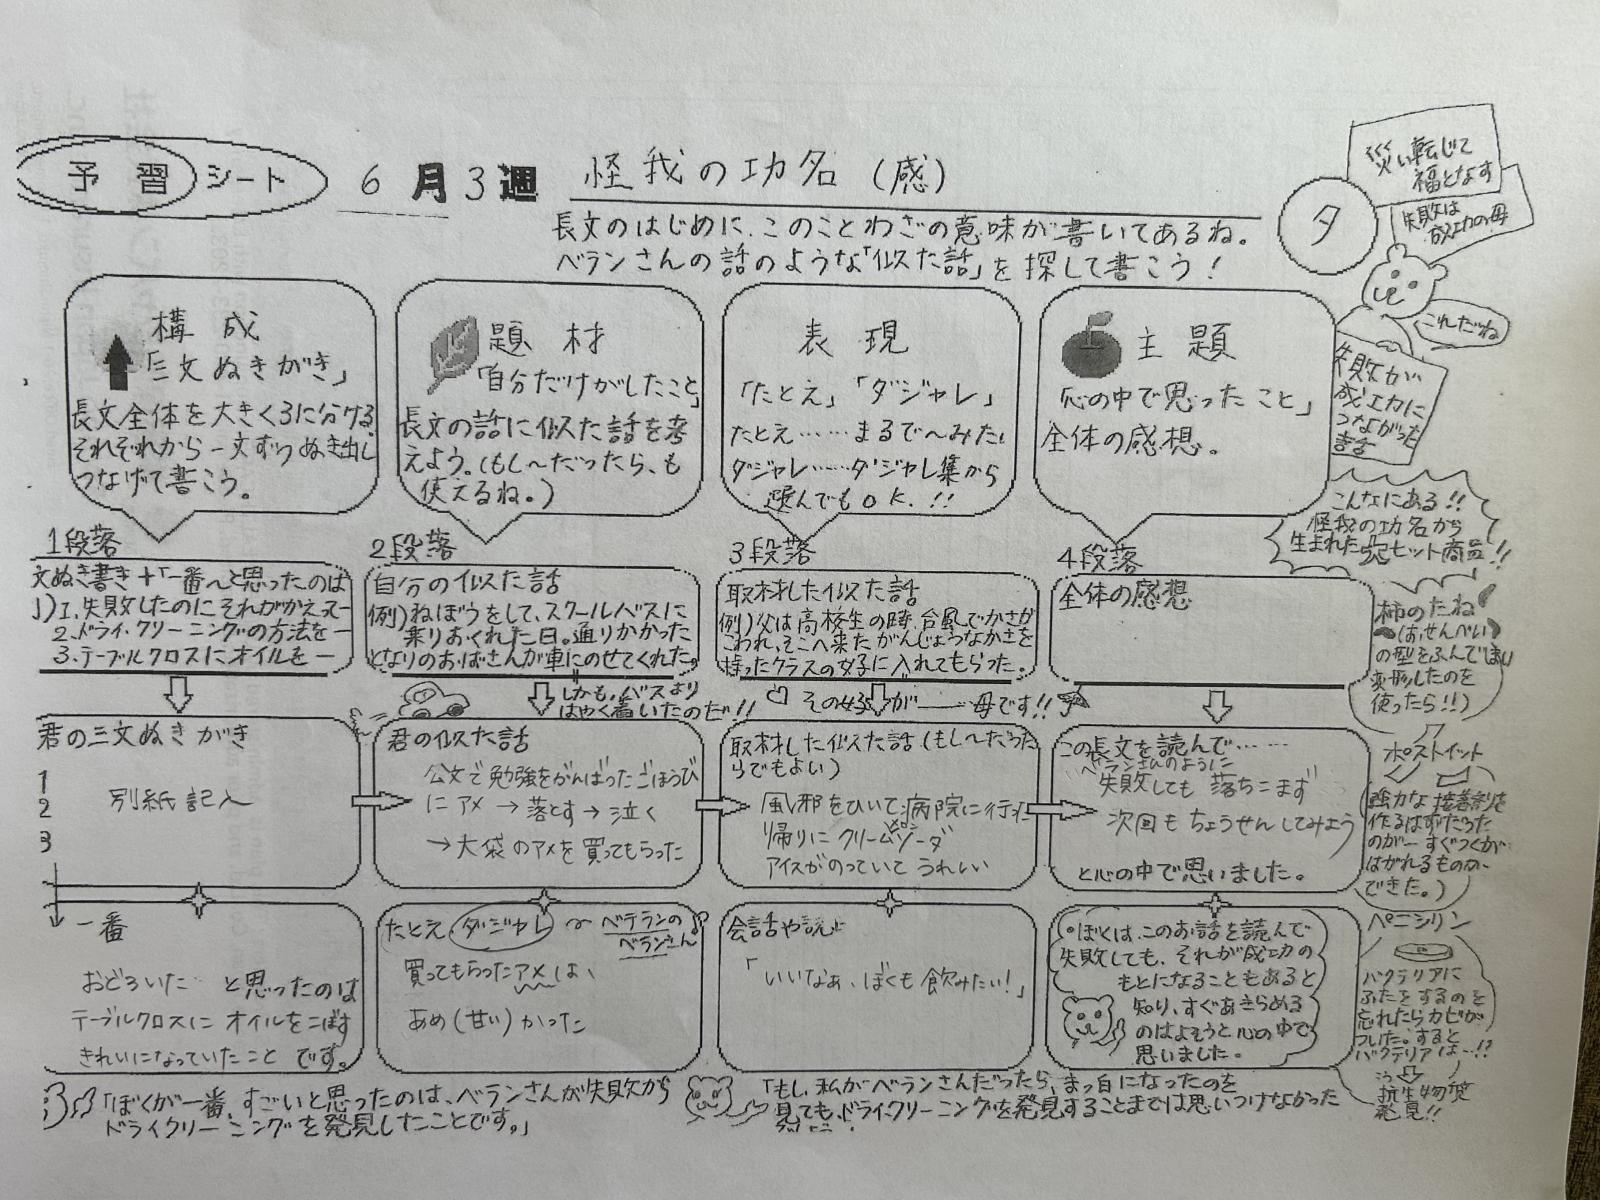 予習シート 6月3週 怪我の功名(感)
長文のはじめに、このことわざの意味が書いてあるね。
ベランさんの話のような「似た話」を探して書こう!
タ
災い転じて
福となす
失敗は
成功の母
これだね
失敗が
成功に
つながった
話
構成
「三文ぬきがき」
長文全体を大きく3に分ける。
それぞれから一文ずつぬき出し
つなげて書こう。
題材
「自分だけがしたこと」
長文の話に似た話を考
えよう。(もし〜だったら、も
使えるね。)
表現
「たとえ」「ダジャレ」
たとえ……まるで〜みたい
ダジャレ……ダジャレ集から
選んでもOK.!!
主題
「心の中で思ったこと」
全体の感想。
こんなにある!!
怪我の功名から
生まれた大ヒット商品!!
1段落
文ぬき書き+「一番〜と思ったのは
1.失敗したのにそれがかえって
2.ドライ・クリーニングの方法を一
3.テーブルクロスにオイルを一
2段落
自分の似た話
例)ねぼうをして、スクールバスに
乗りおくれた日。通りかかった
となりのおばさんが車にのせてくれた。
しかも、バスより
はやく着いたのだ!!
3段落
取材した似た話
例)父は高校生の時、台風でかさが
こわれ、そこへ来たがんじょうなかさを
持ったクラスの女子に入れてもらった。
その女子が――母です!!
4段落
全体の感想
君の三文ぬきがき
1
2
3
別紙記入
君の似た話
公文で勉強をがんばったごほうび
にアメ→落とす→泣く
→大袋のアメを買ってもらった
取材した似た話(もし〜だった
らでもよい)
風邪をひいて病院に行った
帰りにクリームソーダ
メロン
アイスがのっていてうれしい
この長文を読んで……
ベランさんのように
失敗しても落ちこまず
次回もちょうせんしてみよう
と心の中で思いました。
一番
おどろいたと思ったのは
テーブルクロスにオイルをこぼす
きれいになっていたことです。
たとえ ダジャレ 〜ベテランの
ベランさん
買ってもらったアメは、
あめ(甘い)かった
会話や説
「いいなぁ、ぼくも飲みたい!」
・ぼくは、このお話を読んで
失敗しても、それが成功の
もとになることもあると
知り、すぐあきらめる
のはよそうと心の中で
思いました。
柿のたね
(おせんべい
の型をふんでしまい
変形したのを
使ったら!!)
ポストイット
強力な接着剤を
作るはずだった
のが一すぐつくが
はがれるものが
できた。)
ペニシリン
バクテリアに
ふたをするのを
忘れたらカビが
ついた。すると
バクテリアは…!?
抗生物質
発見!!
「ぼくが一番、すごいと思ったのは、ベランさんが失敗から
ドライクリーニングを発見したことです。」
「もし、私がベランさんだったら、まっ白になったのを
見ても、ドライ・クリーニングを発見することまでは思いつけなかった